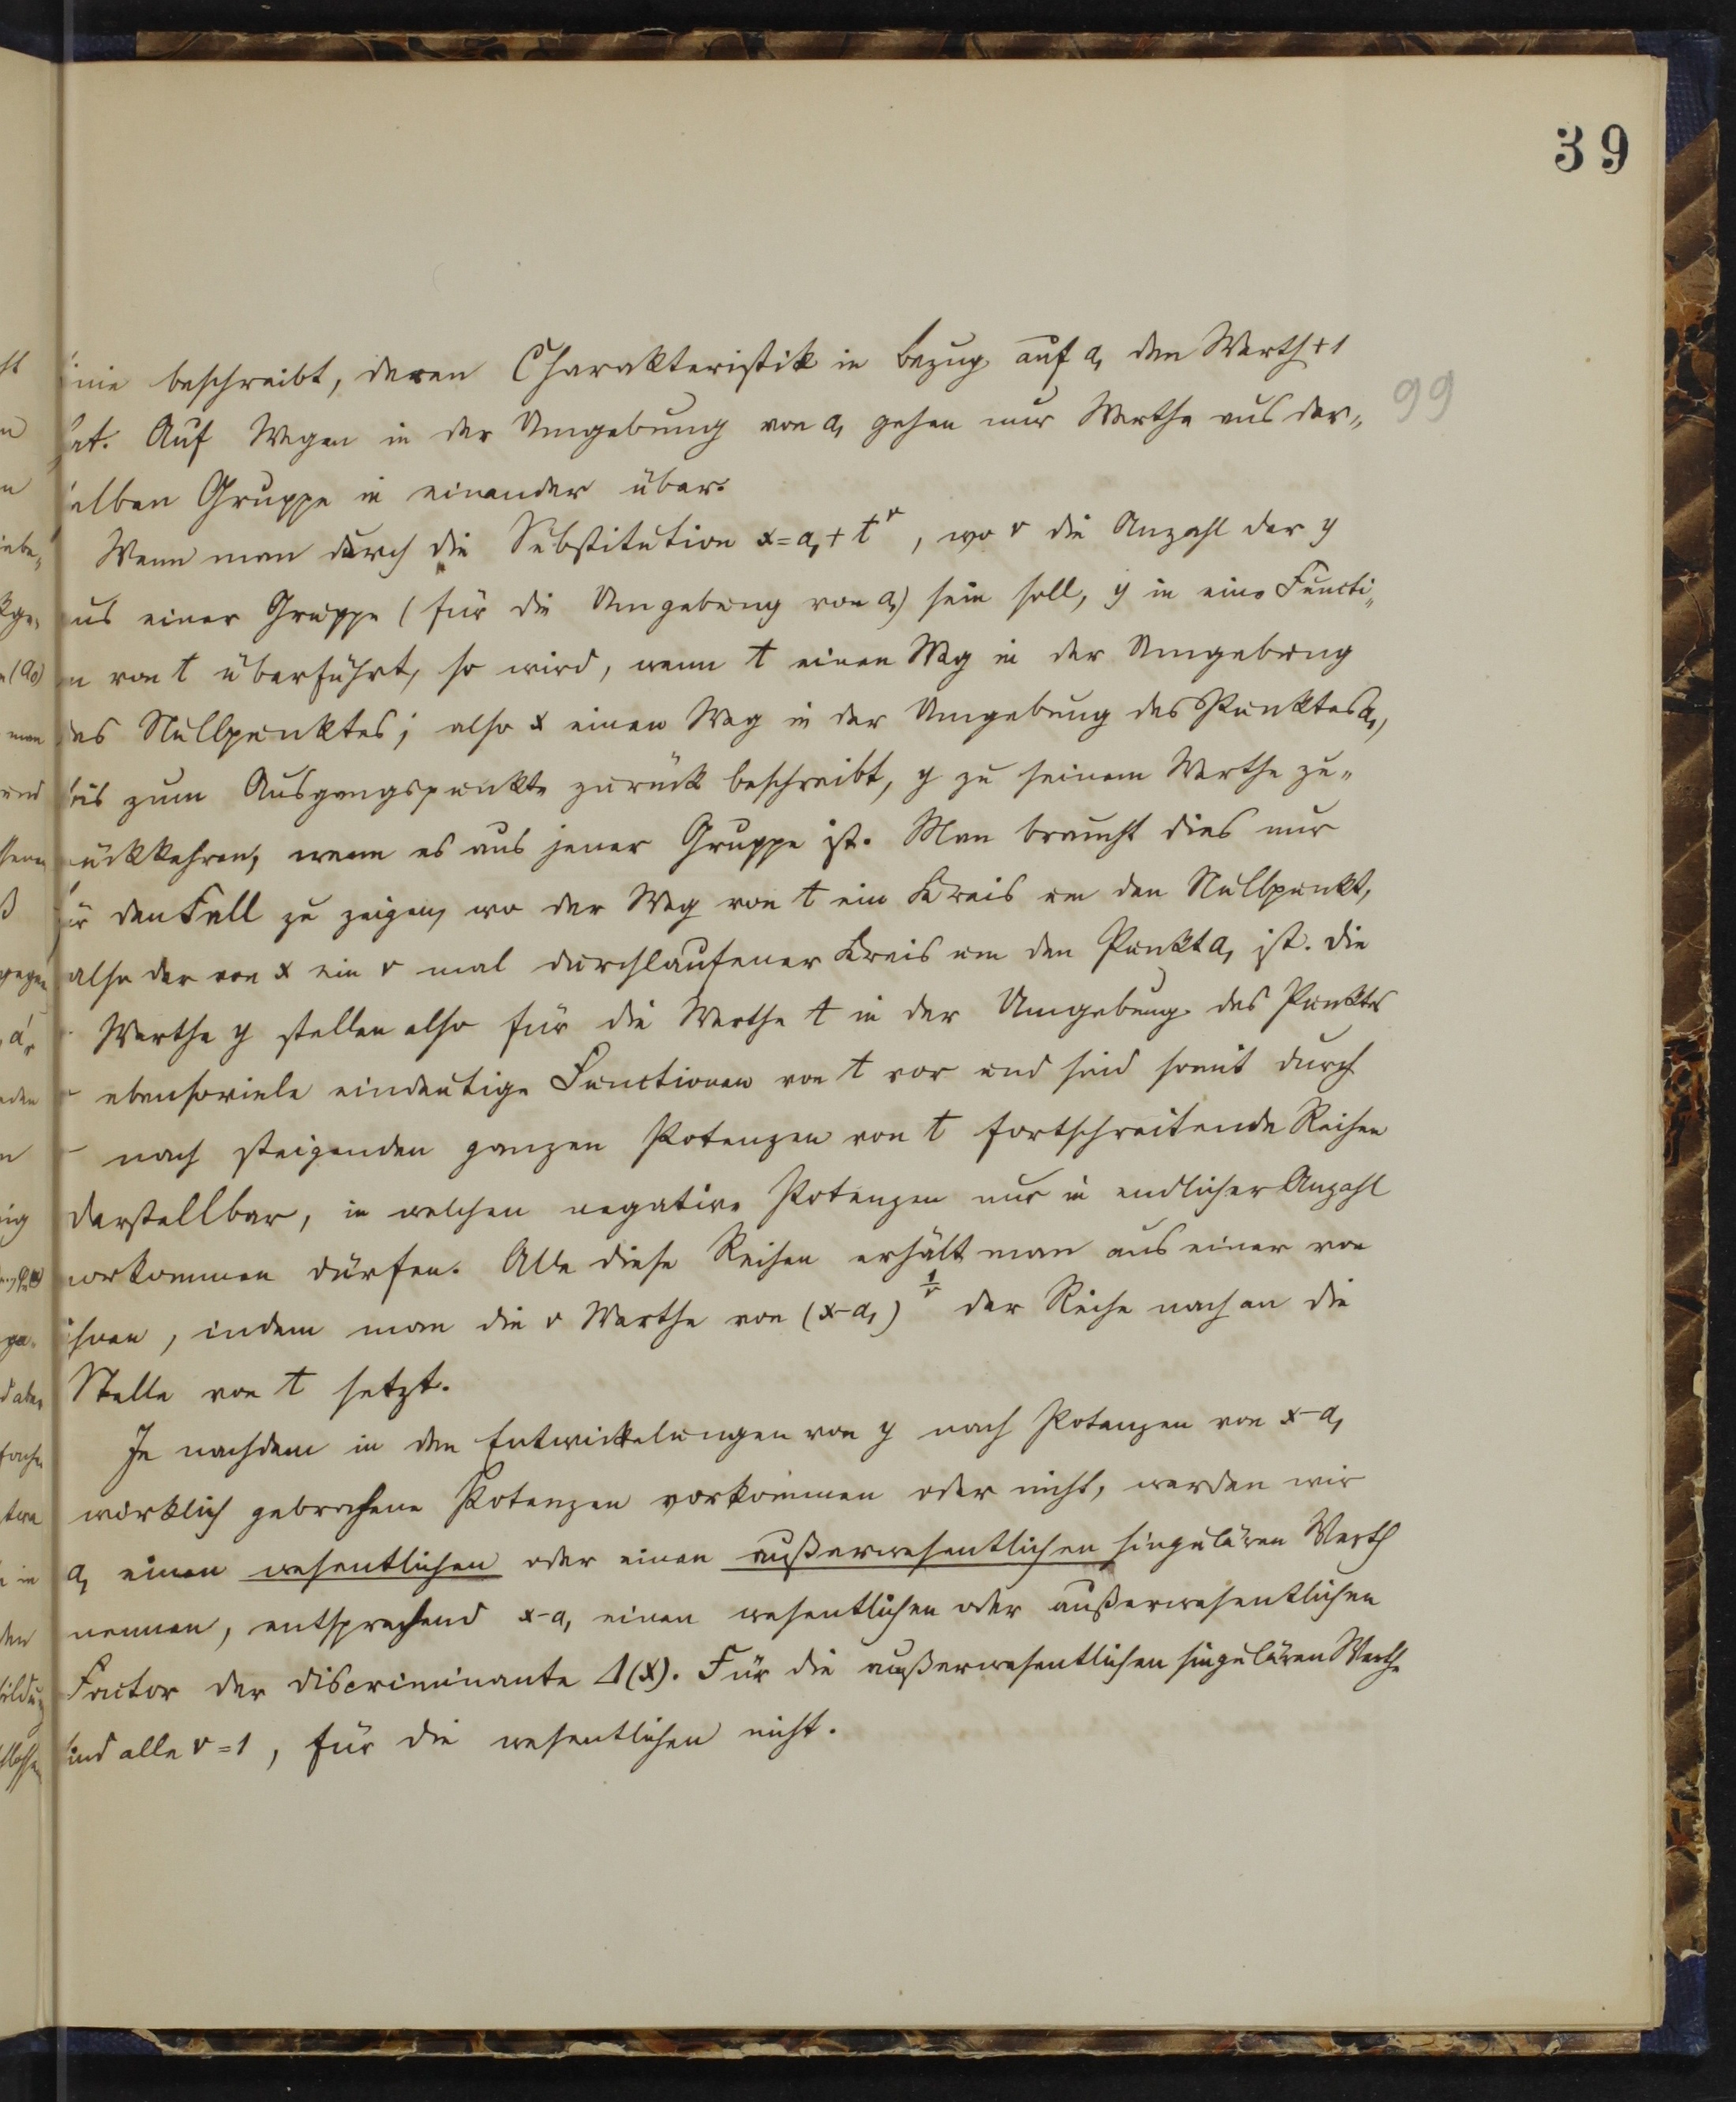 39
99
inie beschreibt, deren Charakteristik in Bezug auf a₁ den Werth +1
hat. Auf Wegen in der Umgebung von a₁ gehen nur Werthe aus der„
selben Gruppe in einander über.
Wenn man durch die Substitution x=a₁+t^r, wo r die Anzahl der y
aus einer Gruppe (für die Umgebung von a₁) sein soll, y in eine Functi„
n von t überführt, so wird, wenn t einen Weg in der Umgebung
des Nullpunktes; also x einen Weg in der Umgebung des Punktes a₁,
bis zum Ausgangspunkte zurück beschreibt, y zu seinem Werthe zu„
rückkehren, wenn es aus jener Gruppe ist. Man braucht dies nur
für den Fall zu zeigen, wo der Weg von t ein Kreis um den Nullpunkt,
also der von x ein r mal durchlaufener Kreis um den Punkt a₁ ist. Die
Werthe y stellen also für die Werthe t in der Umgebung des Punktes
ebensoviele eindeutige Functionen von t vor und sind somit durch
nach steigenden ganzen Potenzen von t fortschreitende Reihen
darstellbar, in welchen negative Potenzen nur in endlicher Anzahl
vorkommen dürfen. Alle diese Reihen erhält man aus einer von
ihnen, indem man die r Werthe von (x-a₁)^{1/r} der Reihe nach an die
Stelle von t setzt.
Je nachdem in den Entwickelungen von y nach Potenzen von x-a₁
wirklich gebrochene Potenzen vorkommen oder nicht, werden wir
a₁ einen wesentlichen oder einen außerwesentlichen singulären Werth
nennen, entsprechend x-a₁ einen wesentlichen oder außerwesentlichen
Factor der Discriminante Δ(x). Für die außerwesentlichen singulären Werthe
sind alle r=1, für die wesentlichen nicht.